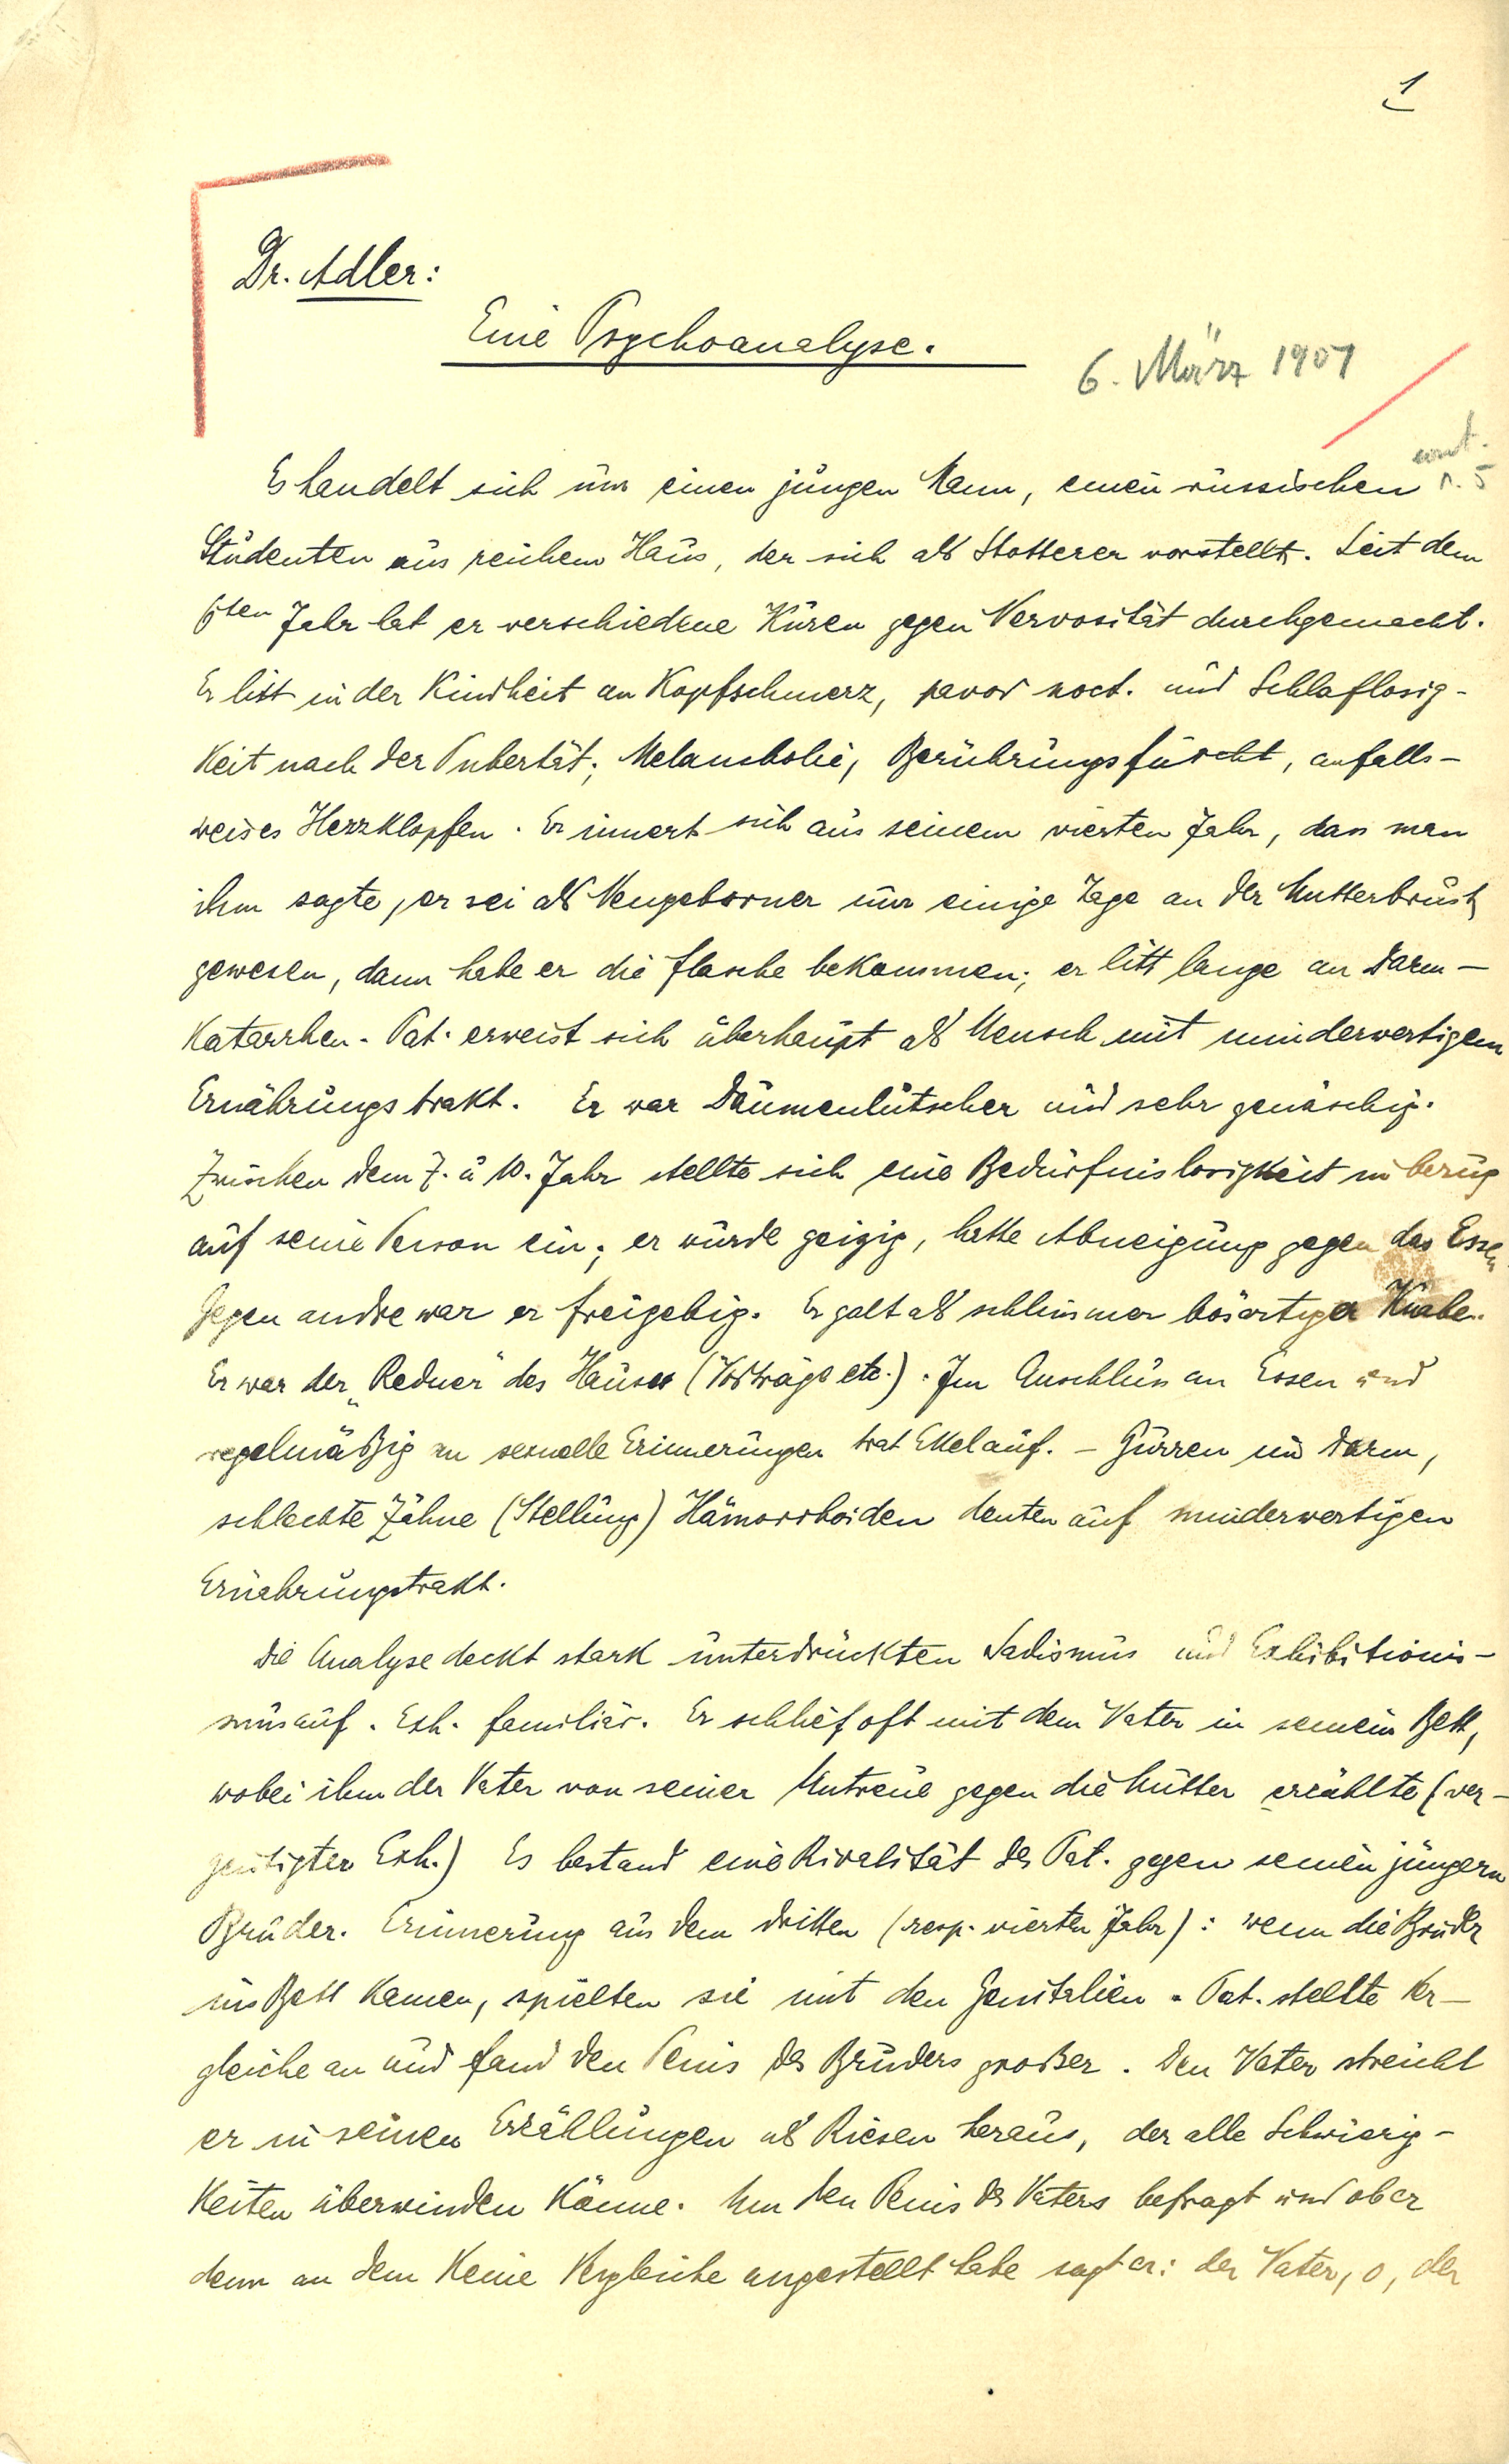 1
Dr. Adler:
Eine Psychoanalyse.
6. März 1907
Es handelt sich um einen jungen Mann, einen russischen
Studenten aus reichem Haus, der sich als Stotterer vorstellt. Seit dem
6ten Jahr hat er verschiedene Kuren gegen Nervosität durchgemacht.
Er litt in der Kindheit an Kopfschmerz, pavor noct. und Schlaflosig-
keit nach der Pubertät; Melancholie, Berührungsfurcht, anfalls-
weises Herzklopfen. Er innert sich aus seinem vierten Jahr, dass man
ihm sagte, er sei als Neugeborner nur einige Tage an der Mutterbrust
gewesen, dann habe er die Flasche bekommen; er litt lange an Darm-
katarrhen. Pat. erweist sich überhaupt als Mensch mit minderwertigem
Ernährungstrakt. Er war Daumenlutscher und sehr genäschig.
Zwischen dem 7. u 10. Jahr stellte sich eine Bedürfnislosigkeit in bezug
auf seine Person ein; er wurde geizig, hatte Abneigung gegen das Essen
Gegen andre war er freigebig. Er galt als schlimmer bösartiger Knabe.
Er war der „Redner" des Hauses (Vorträge etc.). Im Anschluss an Essen und
regelmäßig an sexuelle Erinnerungen trat Ekel auf. - Gurren im Darm,
schlechte Zähne (Stellung) Hämorrhoiden deuten auf minderwertigen
Ernährungstrakt.
Die Analyse deckt stark unterdrückten Sadismus und Exhibitionis-
mus auf. Exh. familiär. Er schlief oft mit dem Vater in seinem Bett,
wobei ihm der Vater von seiner Untreue gegen die Mutter erzählte (ver-
geistigter Exh.) Es bestand eine Rivalität des Pat. gegen seinen jüngern
Bruder. Erinnerung aus dem dritten (resp. vierten Jahr): wenn die Brüder
ins Bett kamen, spielten sie mit den Genitalien. Pat. stellte Ver-
gleiche an und fand den Penis des Bruders großer. Den Vater streicht
er in seinen Erzählungen als Riesen heraus, der alle Schwierig-
keiten überwinden könne. Um den Penis des Vaters befragt und ob er
denn an dem keine Vergleiche angestellt habe sagt er: der Vater, o, der